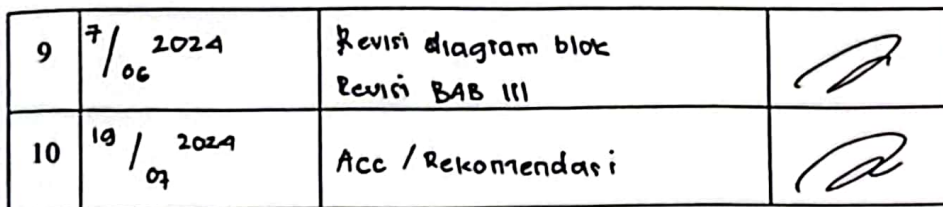 9 7/06 2024 Revisi diagram blok
Revisi BAB III
10 19/07 2024 Acc / Rekomendasi